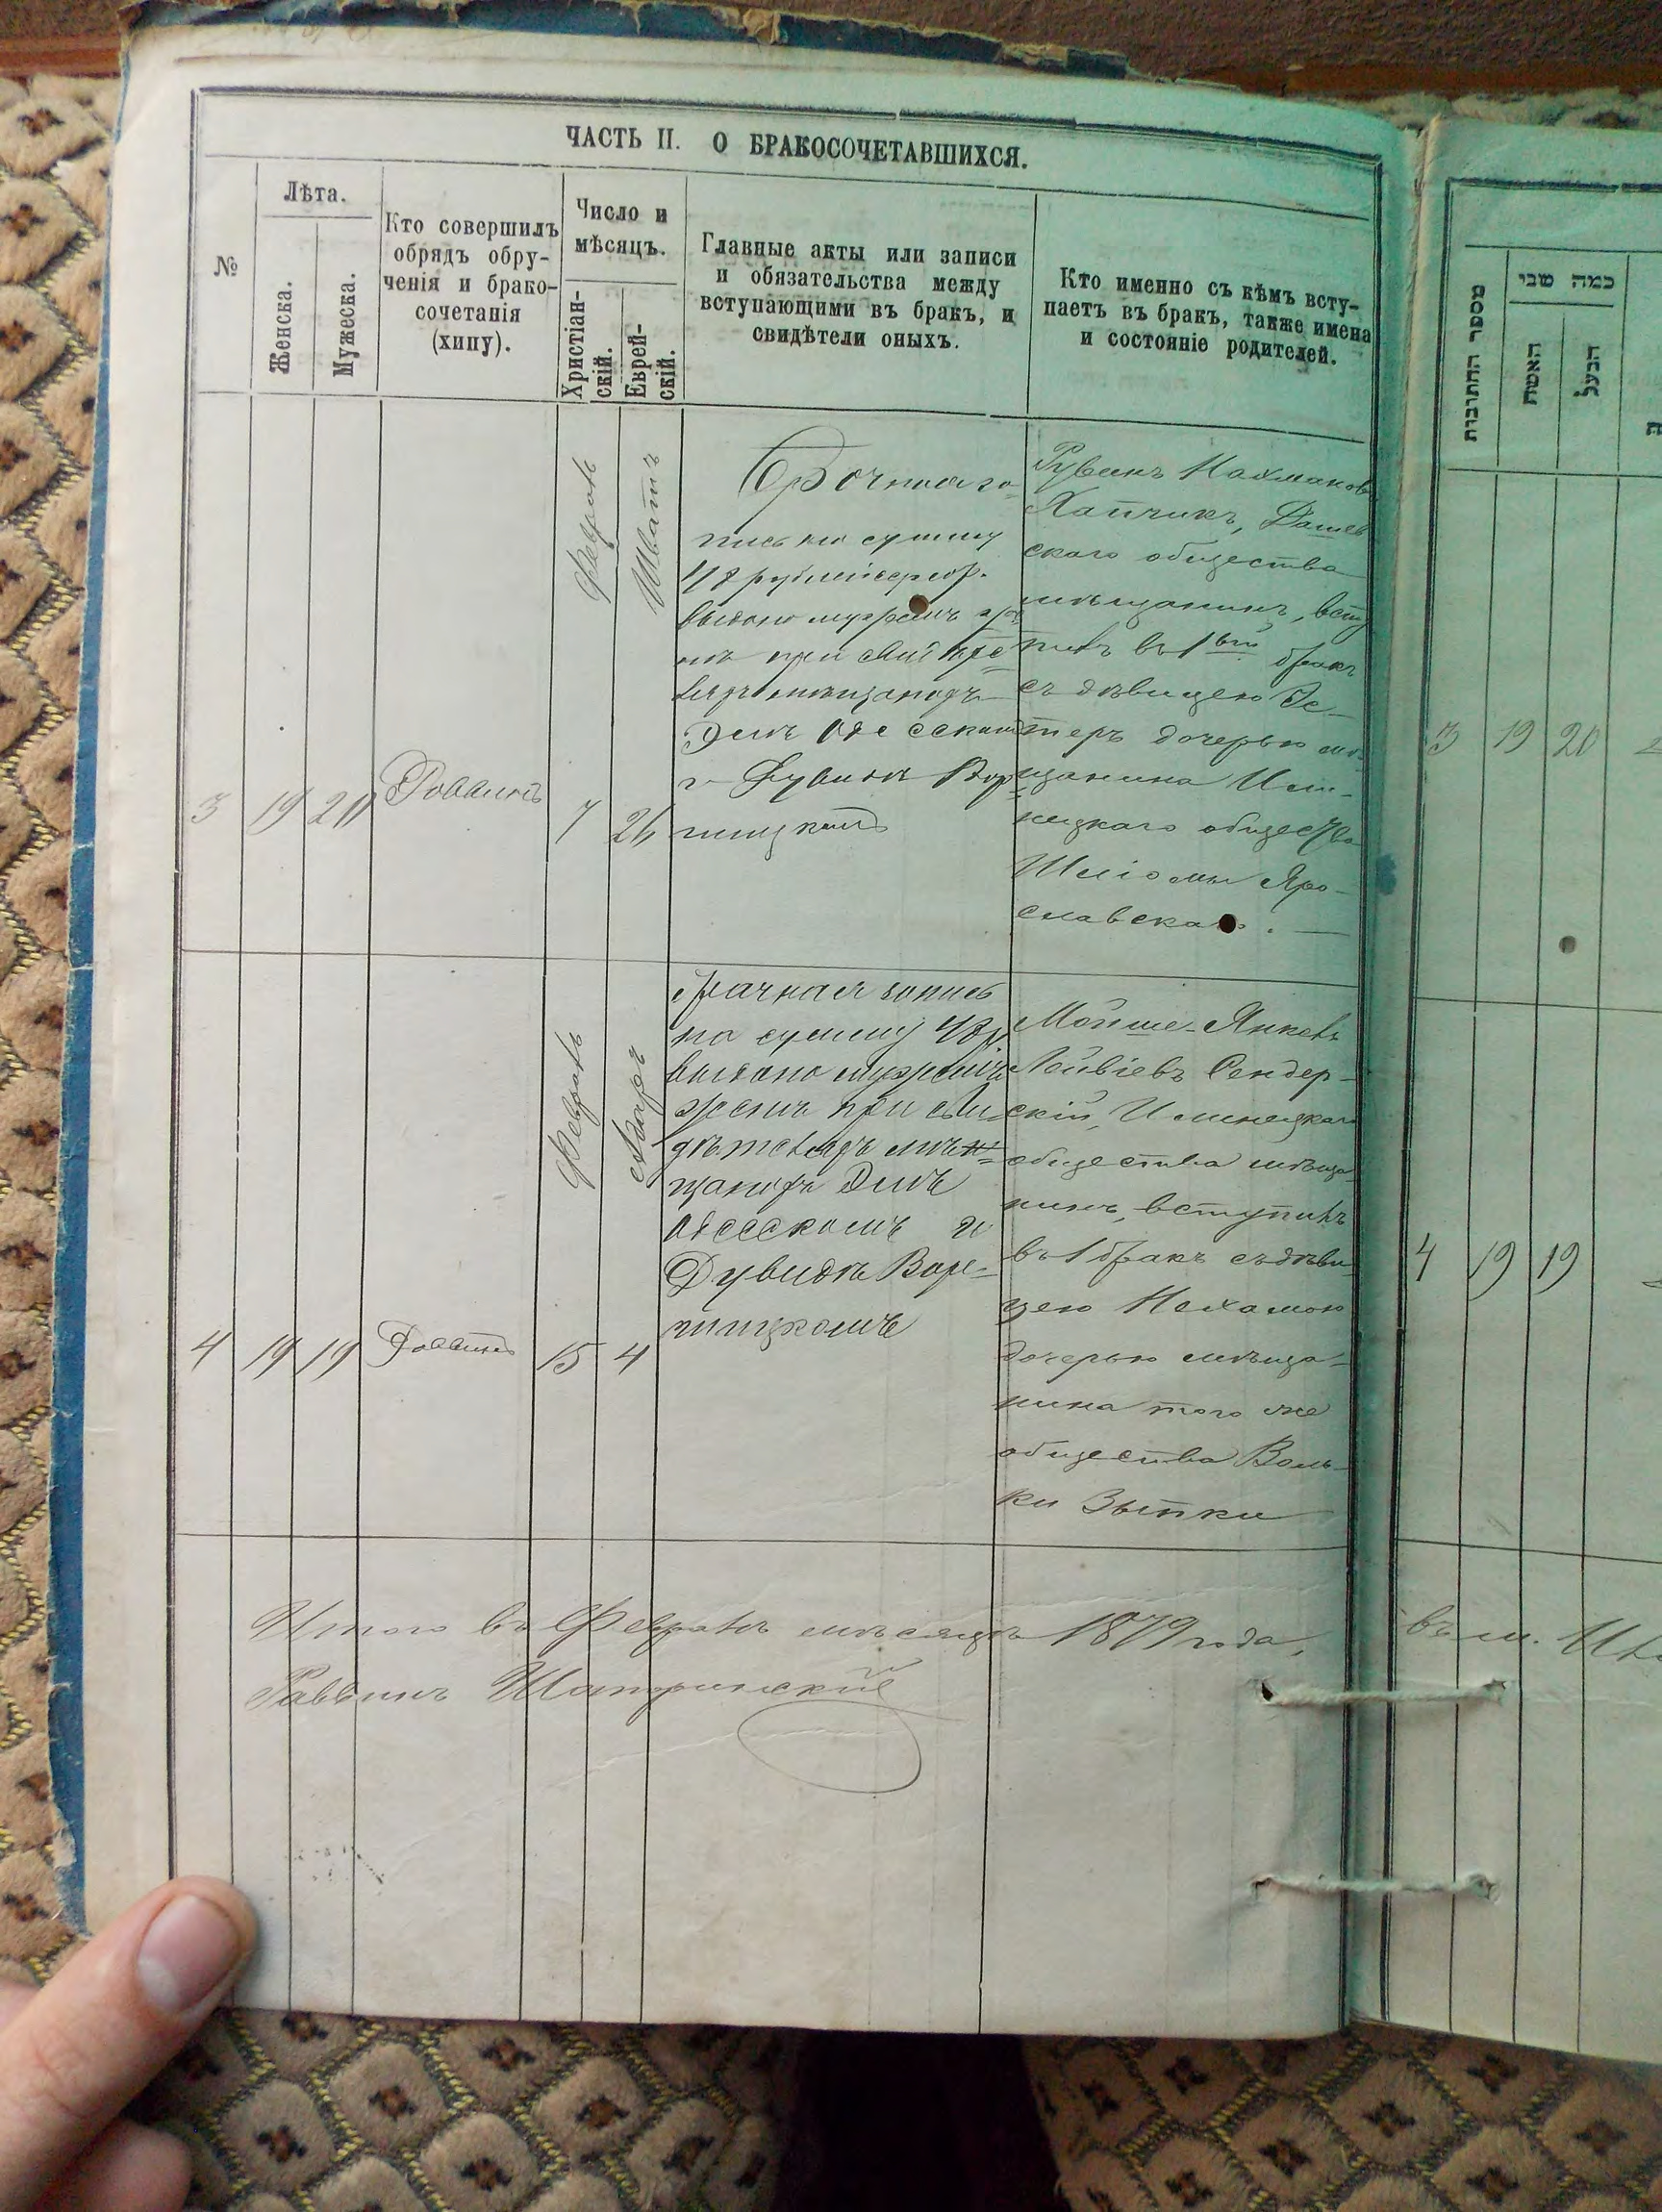 ЧАСТЬ II. О БРАКОСОЧЕТАВШИХСЯ.
№
Лѣта.
Женска.
Мужеска.
Кто совершилъ
обрядъ обру-
ченія и брако-
сочетанія
(хипу).
Число и
мѣсяцъ.
Христіан-
скій.
Еврей-
скій.
Главные акты или записи
и обязательства между
вступающими въ бракъ, и
свидѣтели оныхъ.
Кто именно съ кѣмъ всту-
паетъ въ бракъ, также имена
и состояніе родителей.
3
19
20
Раввинъ
Февраль
7
Шватъ
26
Брочная за-
пись на сумму
48 рублей сереб.
выдано мужемъ же-
нѣ при свидѣте
ляхъ мѣщанахъ
Эмѣ Одесскимъ
и Дувидѣ Вор-
ницкимъ
Рувинъ Нахмановъ
Хапчикъ, Дашев
скаго общества
мѣщанинъ, всту
пилъ въ 1вый бракъ
съ дѣвицею Эс-
теръ дочерью мѣ-
щанина Или-
нецкаго общества
Шліомы Яро-
славскаго. —
4
19
19
Раввинъ
Февраль
15
Адаръ
4
брачная запись
на сумму 48 р.
выдано мужемъ
женѣ при сви
дѣтеляхъ мѣ
щанахъ Эмѣ
Одесскомъ и
Дувидѣ Вор-
ницкомъ
Мойше-Янкель
Лейвіевъ Сендер-
скій, Илинецкаго
общества мѣща
нинъ, вступилъ
въ 1 бракъ съ дѣви
цею Нехамою
дочерью мѣща-
нина того же
общества Воль-
ки Зыпки
Итого въ Февралѣ мѣсяцѣ 1879 года,
Раввинъ
מספר החתונות
כמה שני
האשה
הבעל
3
19
20
4
19
19
въ м.